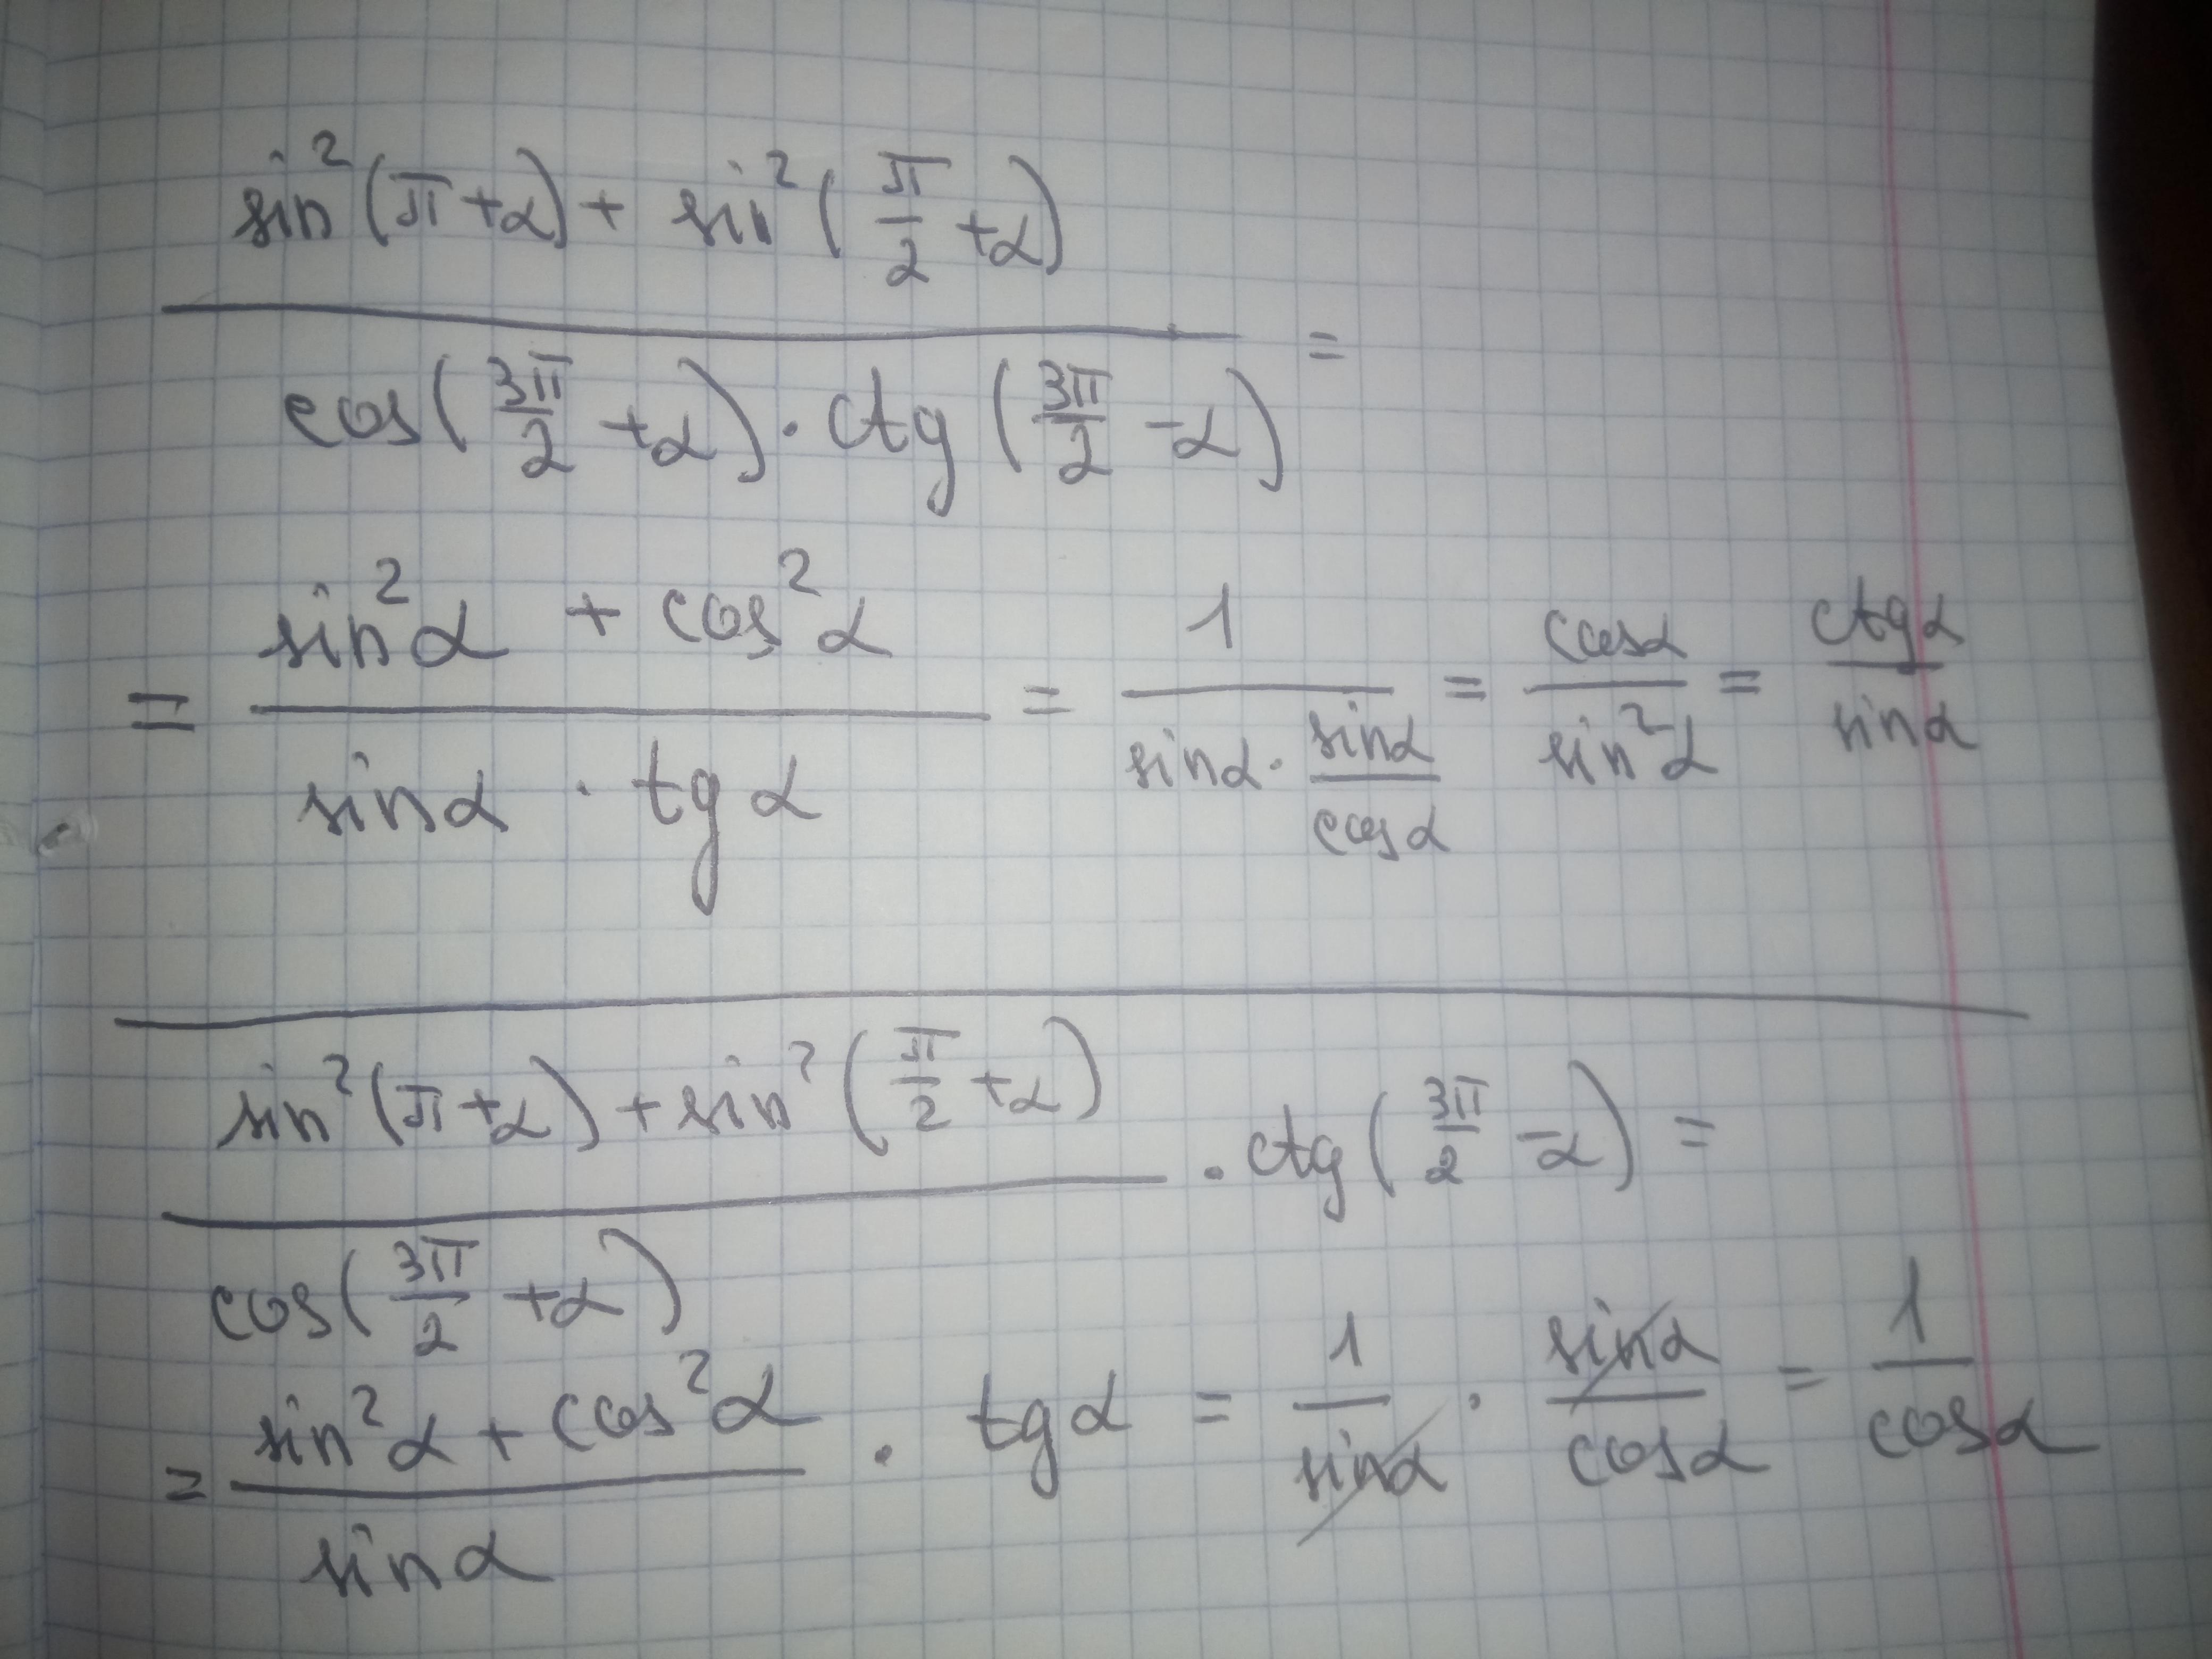 sin²(π+α) + sin²(π/2 +α)
/ cos(3π/2 +α) · ctg(3π/2 -α) =
= (sin²α + cos²α) / (sinα · tg α) = 1 / (sinα · sinα/cosα) = cosα / sin²α = ctgα / sinα
sin²(π+α) + sin²(π/2 +α)
/ cos(3π/2 +α) · ctg(3π/2 -α) =
= (sin²α + cos²α) / sinα · tgα = 1/sinα · sinα/cosα = 1/cosα